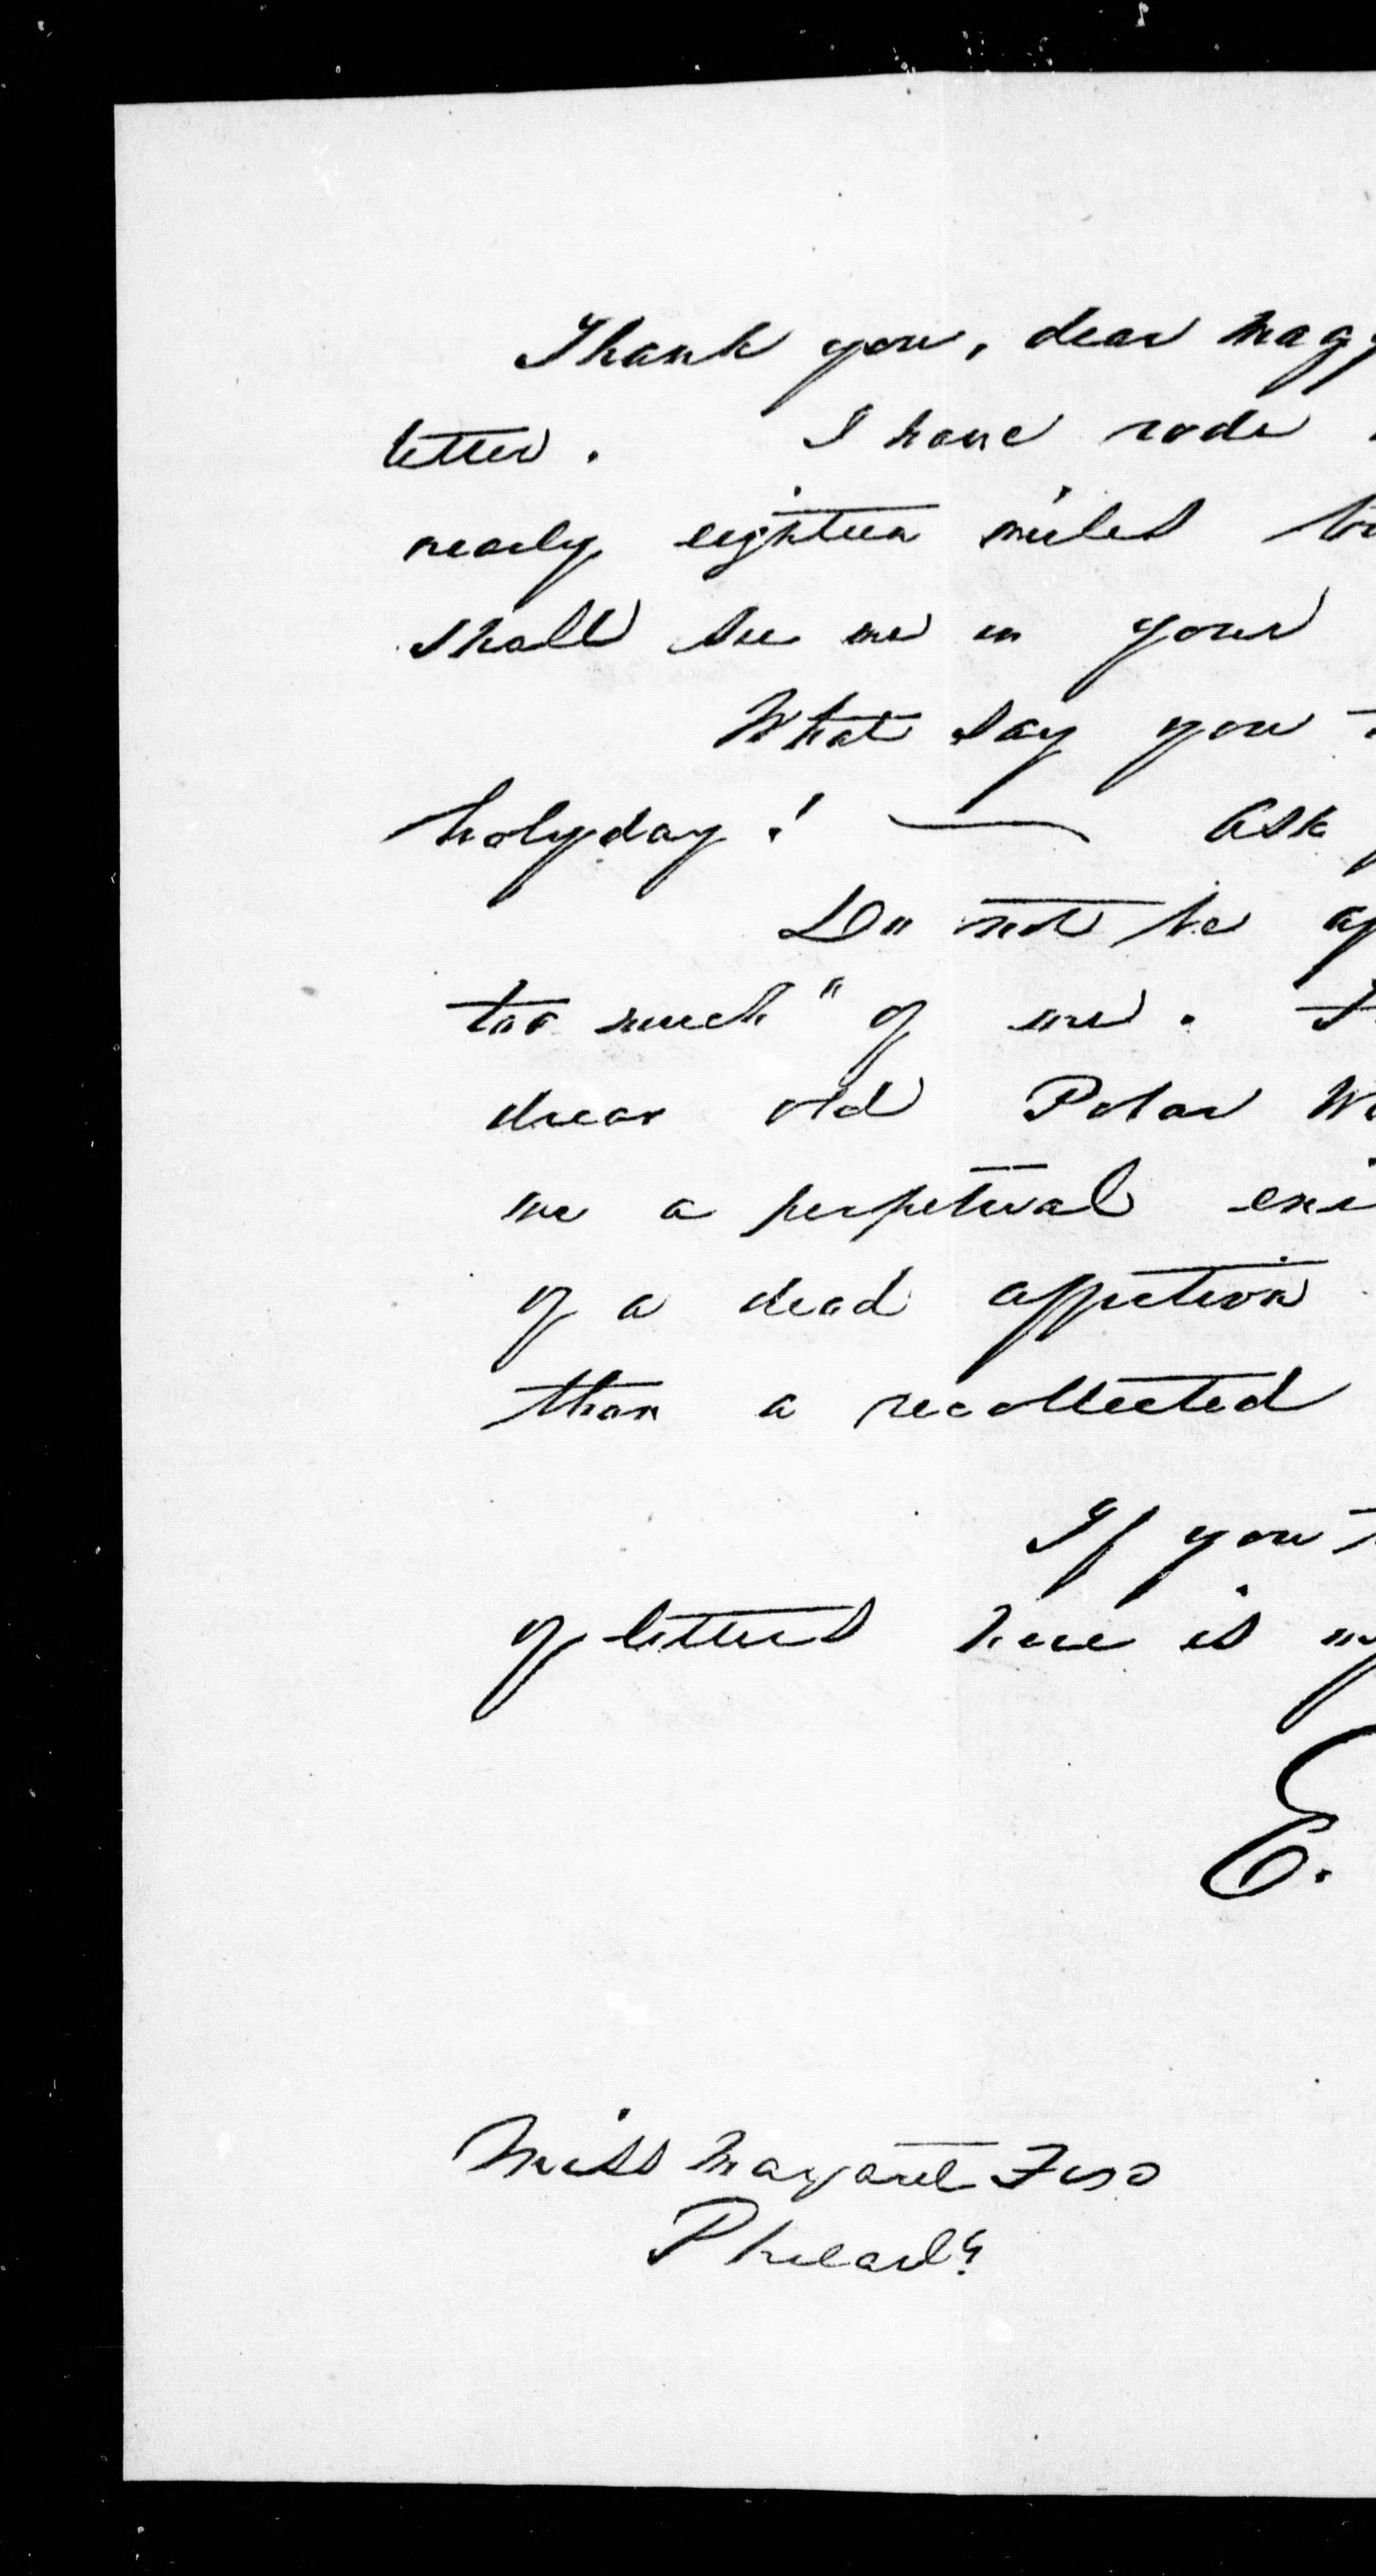 Thank you, dear Magg
letter. I have rode
nearly eighteen miles to
shall see me in your
What say you t
holyday! — Ask y
Do not be ap
too much" of me. I
dear old Polar W
me a perpetual exi
of a dead affection
than a recollected
If you t
of letters here is my
E.
Miss Margaret Fox
Philad